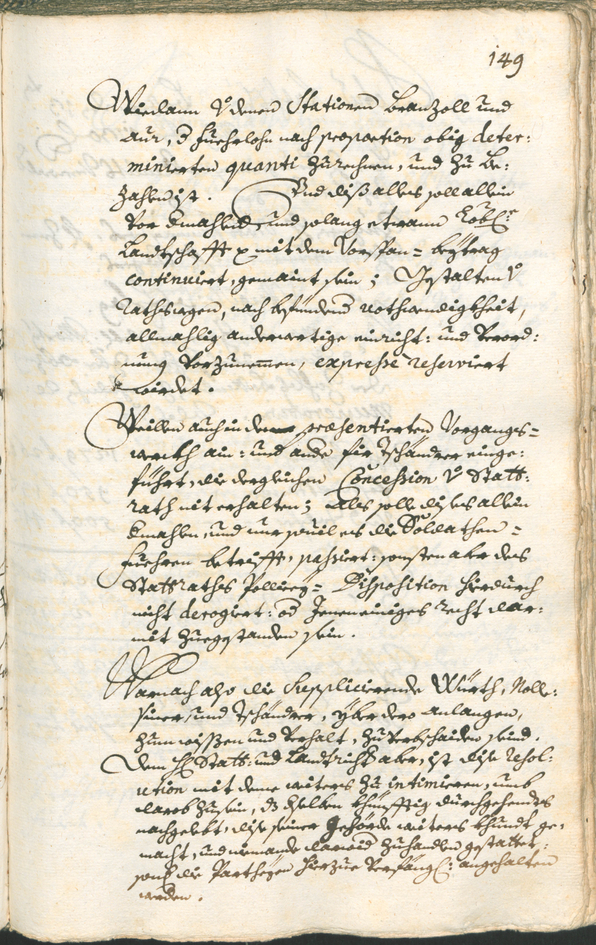 149
Weilann V denen Stationen Branzoll und
aur, d fuehrlohn nach proportion obig deter:
minierten quanti zurechnen, und zu be:
zahlen ist. Und diß alles soll allein
vor dmahlen, und solang etwann Löbl:
Landtschafft mit dem Vorspan= beÿtrag
continuiert, gemaint sein; Gestalten V
Rathswegen, nach befündend nothwendigkheit,
allmahlig anderwertige einricht: und Verord:
nung vorzunemmen, expresse reserviert
wirdet.
Weillen auch in dem præsentierten Vorgangs=
ain: und ande für Tschändrer einge:
führt, die dergleichen Concession V Statt:
rath nit erhalten; Als solle dises allein
dmahlen, und nur souil es die Soldathen=
fuehren betrifft, passiert: sonsten aber des
Stattrathes Policeÿ= Disposition hierdurch
nicht derogiert: od Jenen einiges recht dar:
mit zuegstanden sein.
Warnach also die Supplicierende Würth, Rolle:
siner, und Tschändrer, yber dero anlangen,
zum wissen und Verhalt, zu verbschaiden seind.
Dem H Statt: und Landtrichter aber, ist dise resol:
ution mit deme weiters zu intimieren, umb
darob zu sein, dz dselben khünfftig durchgehendts
nachgelebt, dise seiner gehörde weiters khundt ge:
macht, und niemande darwid zuhandlen gestattet,
sonst die Partheÿen hierzue verfängl: angehalten
werden.